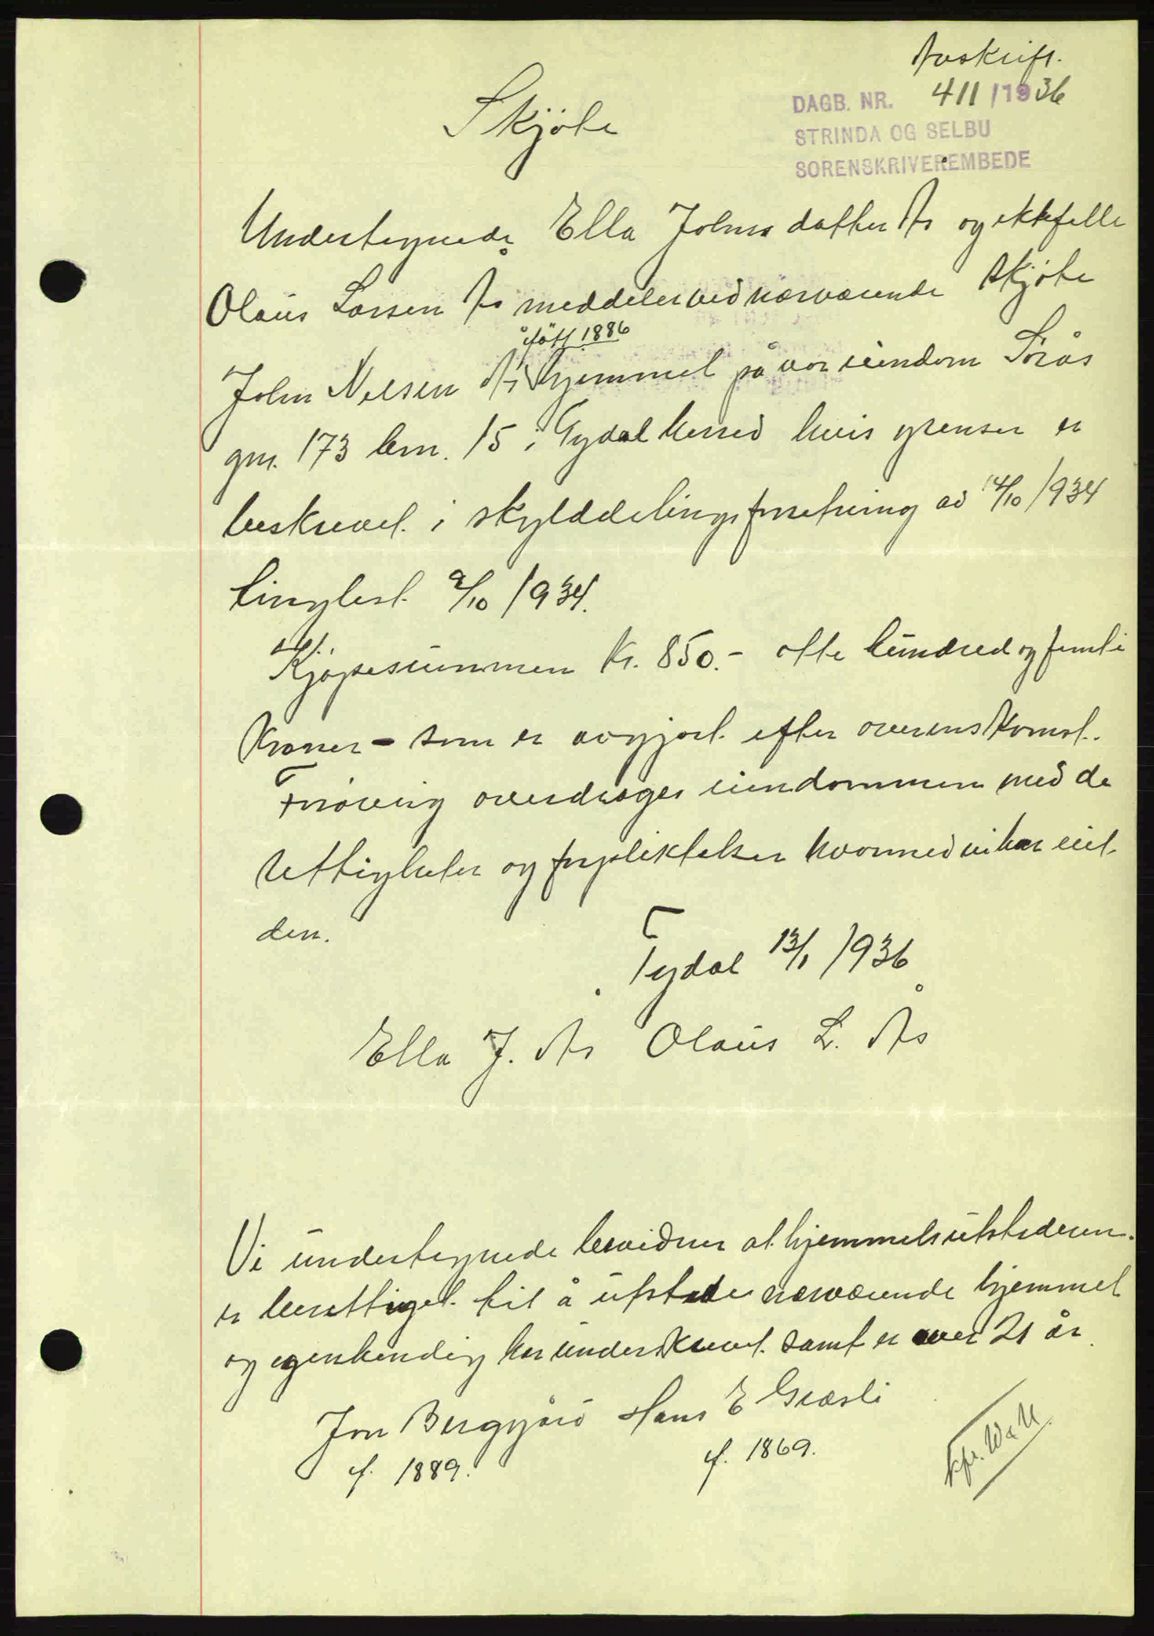 Avskrift.
DAGB. NR. 411/1936
STRINDA OG SELBU
SORENSKRIVEREMBEDE
Skjøte
Undertegnede Ella Johnsdatter Ås og ektefelle
Olaus Larsen Ås meddeler ved nærværende skjøte
født 1886
John Nilsen Ås hjemmel på vor eiendom Sørås
gnr. 173 brn. 15 i Tydal herred hvis grenser er
beskrevet i skylddelingsforretning av 14/10 1934
tinglest 9/10 1934.
Kjøpesummen kr. 850.- otte hundred og femti
kroner - som er avgjort efter overenskomst.
Forøvrig overdrages eiendommen med de
rettigheter og forpliktelser hvormed vi har eiet
den.
Tydal 13/1 1936
Ella J. Ås Olaus L. Ås
Vi undertegnede bevidner at hjemmelsutstederen
er berettiget til å utstede nærværende hjemmel
og egenhendig har underskrevet samt er over 21 år.
Jon Berggård Hans E Græsli
f. 1889. f. 1869.